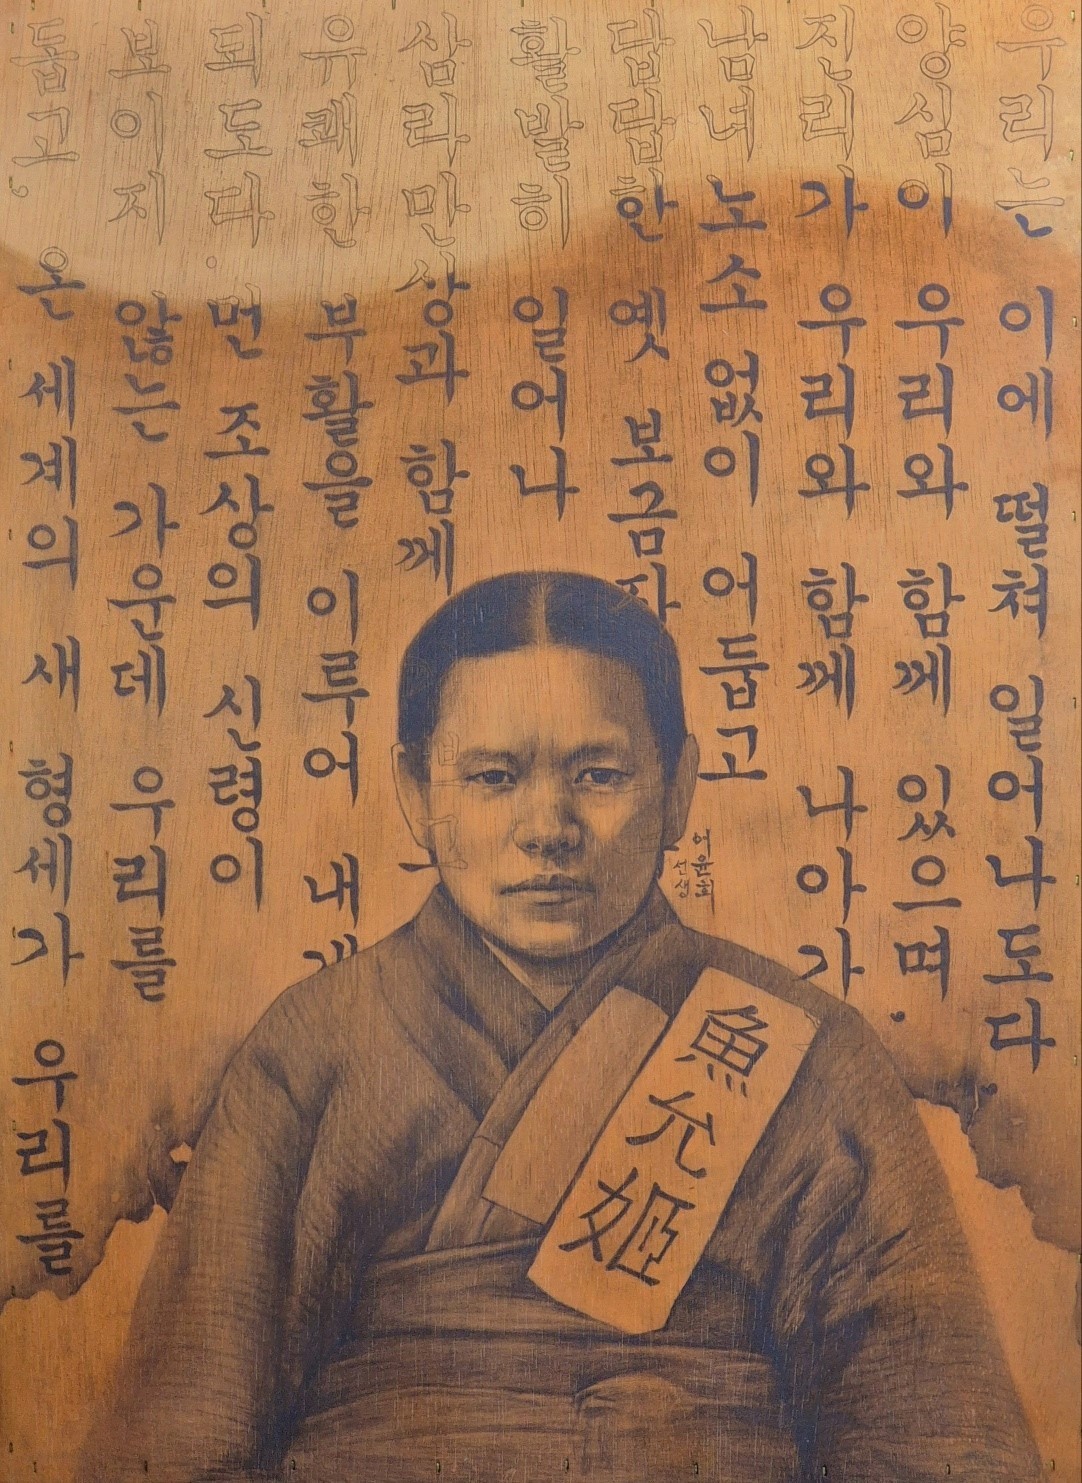 우리는 이에 떨쳐 일어나도다.
양심이 우리와 함께 있으며,
진리가 우리와 함께 나아가
남녀노소 없이 어둡고
답답한 옛 보금자
활발히 일어나
삼라만상과 함께
유쾌한 부활을 이루어 내게
되도다. 먼 조상의 신령이
보이지 않는 가운데 우리를
돕고, 온 세계의 새 형세가 우리를
어윤희
선생
魚允姬